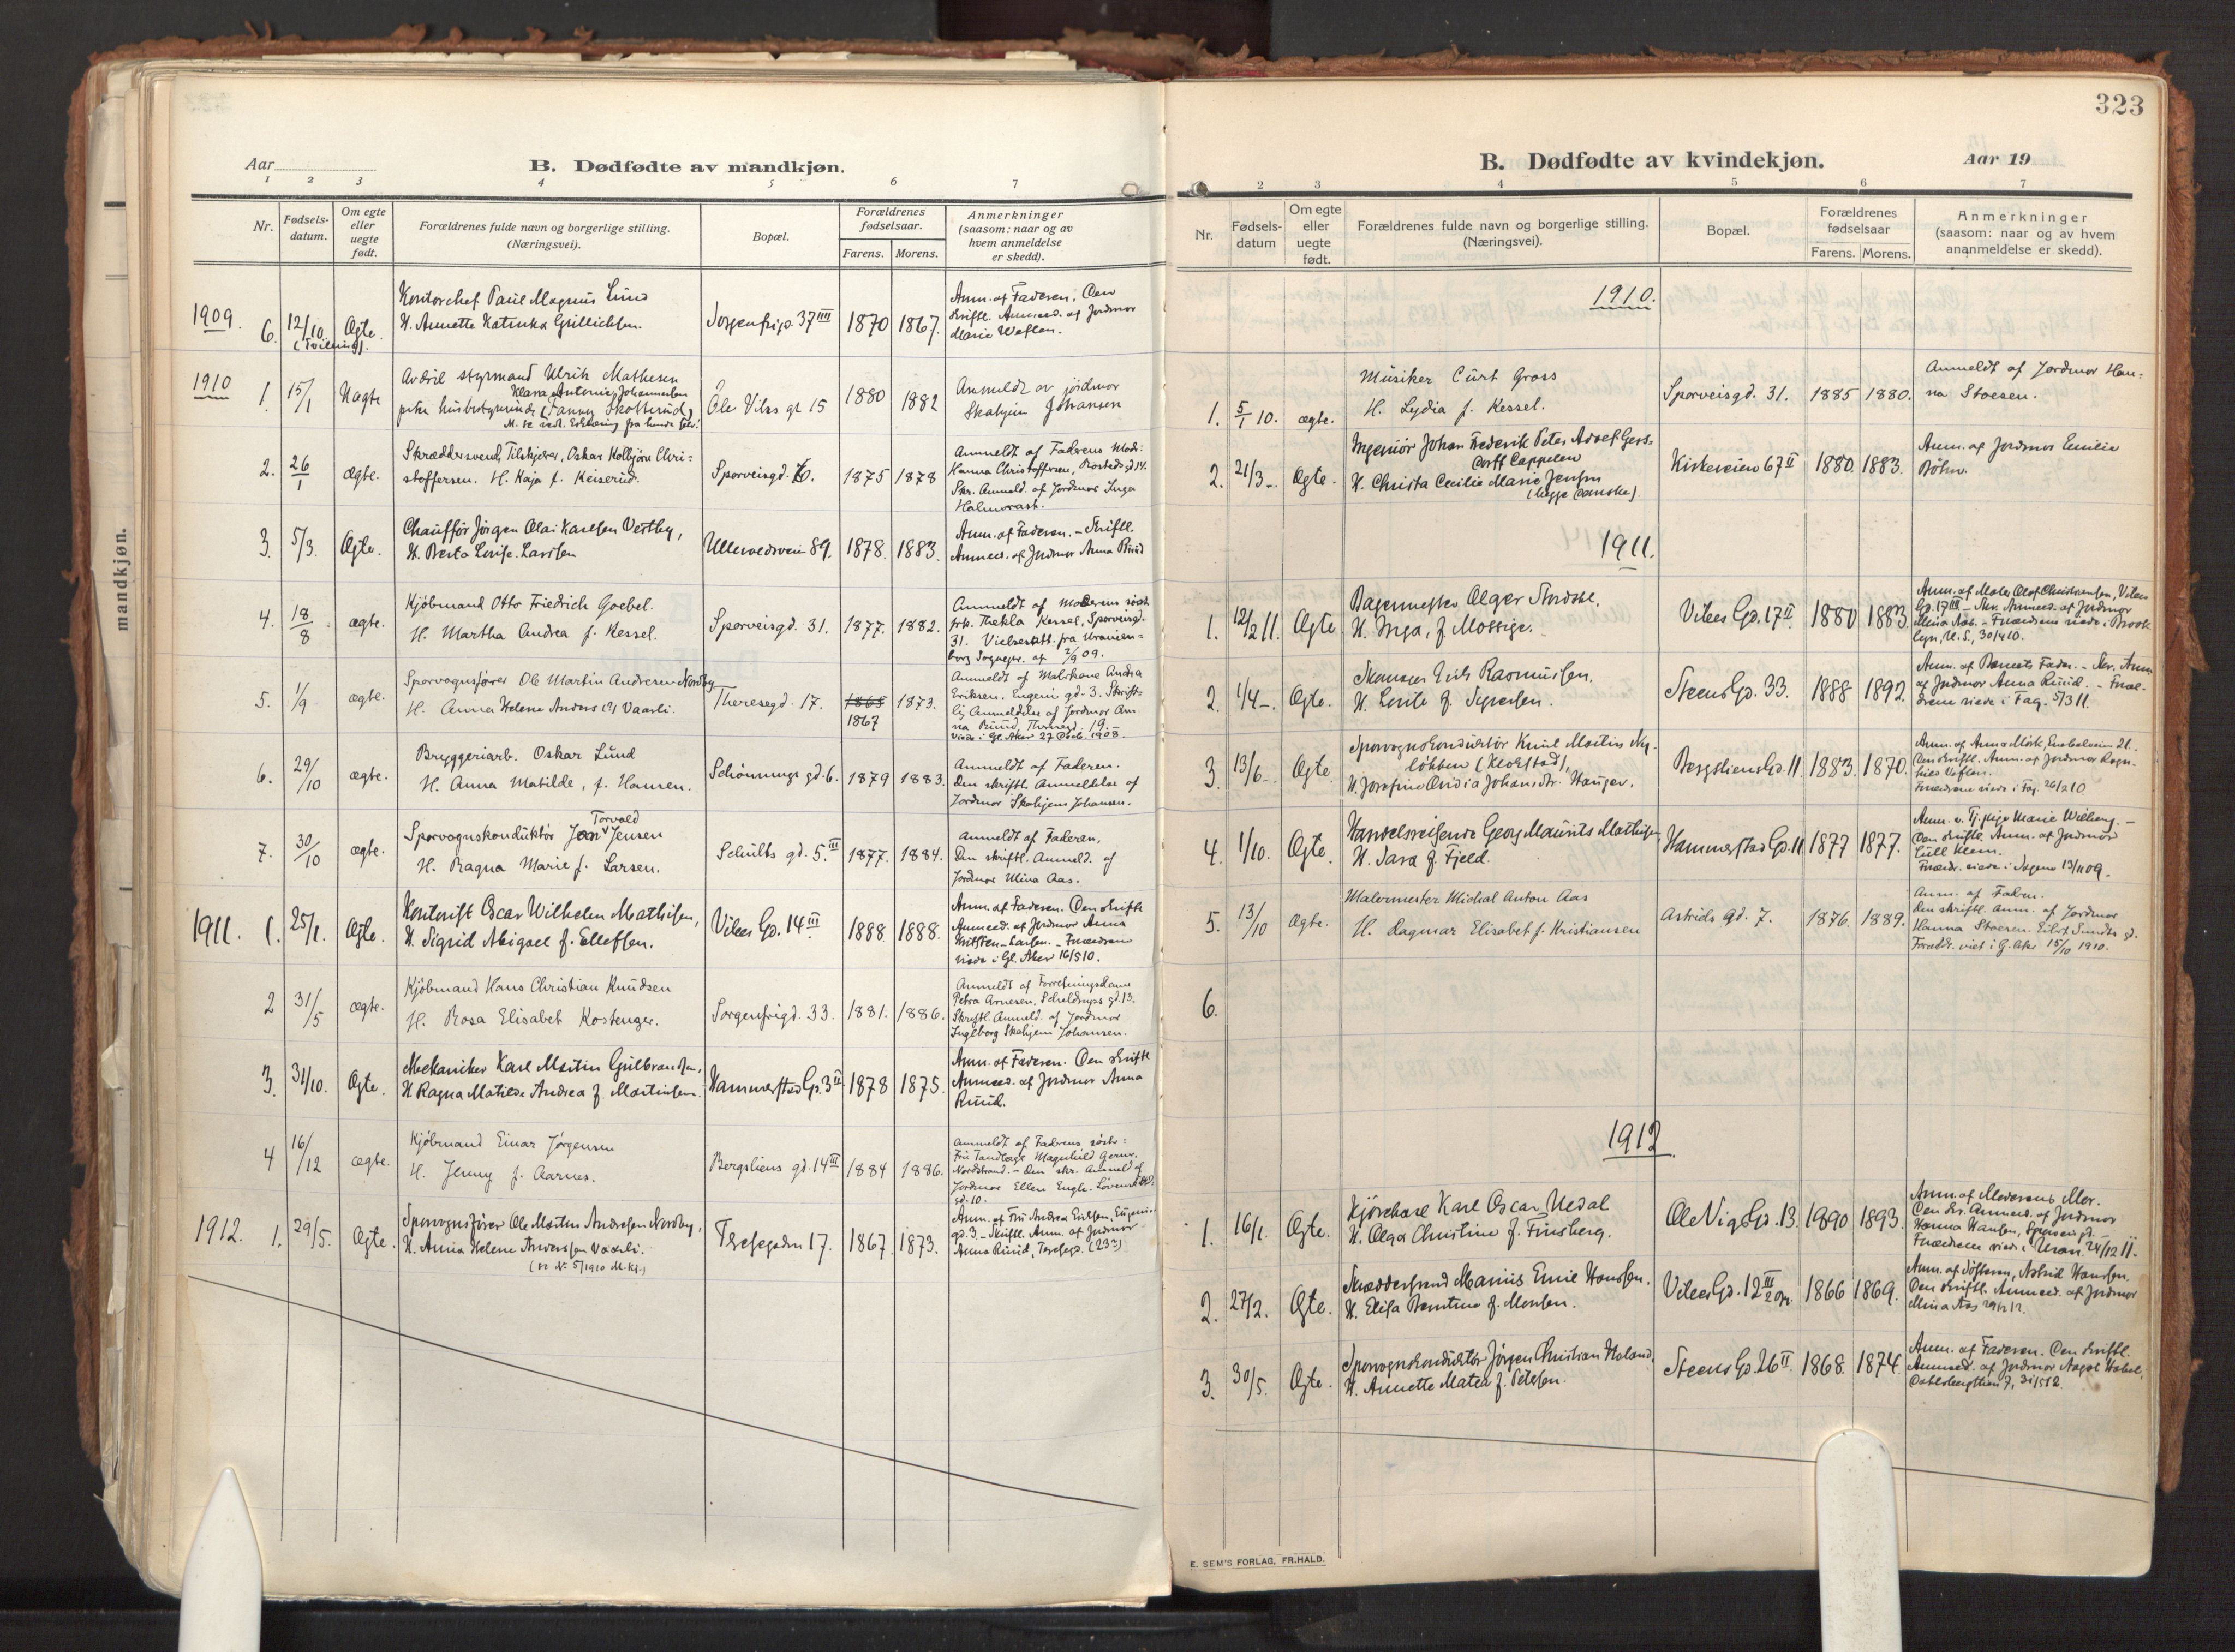 mandkjøn.
Aar
B. Dødfødte av mandkjøn.
1 2 3 4 5 6 7
Nr.
Fødsels-
datum.
Om egte
eller
uegte
født.
Forældrenes fulde navn og borgerlige stilling.
(Næringsvei).
Bopæl.
Forældrenes
fødselsaar.
Farens. Morens.
Anmerkninger
(saasom: naar og av
hvem anmeldelse
er skedd).
1909. 6. 12/10. Ægte. (Tvilling).
Kontorchef Paul Magnus Lund
H. Annette Katinka Gullichsen.
Sorgenfrigd. 37 IIII 1870 1867.
Anm. af Faderen. Den
skriftl. Anmeld. af Jordmor
Marie Weflen.
1910 1. 15/1 Uægte
Avdød styrmand Ulrik Mathesen
Klara Antonie Johannesen
pike husbestyrerinde (Fanny Skotterud)
M. se vedl. Erklæring fra hende selv.
Ole Vigs gt 15 1880 1882
Anmeldt av jordmor
Skahjem Johansen
2. 26/1 ægte.
Skræddersvend, Tilskjærer, Oskar Kolbjørn Chri-
stoffersen. H. Kaja f. Keiserud.
Sporveisgd. 6. 1875 1878
Anmeldt af Faderens Mod:
Hanna Christoffersen, Rostedsgd 14.
Skr. Anmeld. af Jordmor Inga
Holmvast.
3. 5/3. Ægte.
Chauffør Jørgen Olai Karlsen Vestby,
H. Berta Louise Larssen
Ullevoldsveien 89. 1878. 1883.
Anm. af Faderen. - Skriftl.
Anmeld. af Jordmor Anna Ruud
4. 18/8 ægte.
Kjøbmand Otto Friedrich Goebel.
H. Martha Andrea f. Kessel.
Sporveisgd. 31. 1877. 1882.
Anmeldt af Moderens søst.
frk. Thekla Kessel, Sporveisgd.
31. Vielsesatt. fra Uranien-
borg Sognepr. af 2/9 09.
5. 1/9 ægte.
Sporvognsfører Ole Martin Andresen Nordby
H. Anna Helene Andersen Vaarli.
Theresegd. 17. 1865 1867 1873.
Anmeldt af Madam Andrea
Eriksen, Eugenie gd. 3. Skrift-
lig Anmeldelse af Jordmor An-
na Ruud, Theresegd. 19.
Viede i Gl. Aker 27 Decb. 1908.
6. 29/10 ægte.
Bryggeriarb. Oskar Lund
H. Anna Matilde, f. Hansen.
Schønnings gd. 6. 1879 1883.
Anmeldt af Faderen.
Den skriftl. Anmeldelse af
Jordmor Skahjem Johansen.
7. 30/10 ægte.
Torvald
Sporvognskonduktør Jan Jensen
H. Ragna Marie f. Larsen.
Schults gd. 5. III 1877. 1884.
Anmeldt af Faderen,
Den skriftl. Anmeld. af
Jordmor Mina Aas.
1911. 1. 25/1. Ægte.
Kontorist Oscar Wilhelm Mathisen,
H. Sigrid Abigael f. Ellefsen.
Vibes Gd. 14 III 1888. 1888.
Anm. af Faderen. Den skriftl
Anmeld. af Jordmor Anna
-Larsen. - Forældrene
viede i Gl. Aker 16/5 10.
2 31/5 ægte.
Kjøbmand Hans Christian Knudsen
H. Rosa Elisabet Kostenger.
Sorgenfrigd. 33. 1881. 1886.
Anmeldt af Forretningsdame
Petra Arnesen, Scheldrups gd. 13.
Skriftl. Anmeld. af Jordmor
Ingeborg Skahjem Johansen.
3. 31/10. Ægte.
Mekaniker Karl Martin Gulbrandsen,
H. Ragna Matilde Andrea f. Martinsen.
Hammerstad Gd. 3 II 1878 1875.
Anm. af Faderen. Den skriftl
Anmeld. af Jordmor Anna
Ruud.
4 16/12 ægte.
Kjøbmand Einar Jørgensen
H. Jenny f. Aarnes.
Bergsliens gd. 14 III 1884 1886.
Anmeldt af Faderens søster:
Fru Tandlæge Magnhild
Nordstrand. - Den skr. Anmeld af
Jordmor Ellen Engh.
gd. 10.
1912. 1. 29/5. Ægte.
Sporvognsfører Ole Martin Andresen Nordby,
H. Anna Helene Anderssen Vaarli.
(se No 5/1910 M.kj.)
Teresegaden 17. 1867. 1873.
Anm. af Fru Andrea Eriksen, Eugenie-
gd. 3. - Skriftl. Anm. af Jordmor
Anna Ruud, Teresegd.
323
B. Dødfødte av kvindekjøn.
Aar 19
2 3 4 5 6 7
Nr.
Fødsels-
datum
Om egte
eller
uegte
født.
Forældrenes fulde navn og borgerlige stilling.
(Næringsvei).
Bopæl.
Forældrenes
fødselsaar
Farens. Morens.
Anmerkninger
(saasom: naar og av hvem
ananmeldelse er skedd).
1910.
1. 5/1 10. ægte.
Musiker Curt Gross
H. Lydia f. Kessel.
Sporveisgd. 31. 1885 1880.
Anmeldt af Jordmor Han-
na Stoesen.
2. 21/3 -. Ægte.
Ingeniør Johan Frederik Peter Adolf Gers-
dorff Cappelen
H. Christa Cecilie Marie Jensen
(begge danske).
Kirkeveien 67 II 1880. 1883.
Anm. af Jordmor Emilie
Bøhn.
1911.
1. 12/2 11. Ægte
Bagermester Olger Stordal.
H. Inga, f Mossige.
Vibes Gd. 17 II. 1880 1883.
Anm. af Maler Olaf Christiansen, Vibes
Gd. 17 III - Skr. Anmeld. af Jordmor
Mina Aas. - Forældrene viede i Brook-
lyn, U. S., 30/4 10.
2. 1/4 -. Ægte.
Erik Rasmussen.
H. Louise f. Syversen.
Steens Gd. 33. 1888 1892.
Anm. af Barnets Fader. - Skr. Anm
af Jordmor Anna Ruud. - Foræl-
drene viede i Fag. 5/3 11.
3 13/6 - Ægte
Sporvognskonduktør Knut Martin Ny-
løkken (Kloestad),
H. Josefine Ovidia Johansdtr. Hauger.
Bergsliens Gd. 11. 1883. 1870.
Anm. af Anna Mørk, Enebakveien 21.
Den skriftl. Anm. af Jordmor Ragn-
hild Veflen.
Forældrene viede i Fag. 26/2 10
4. 1/10. Ægte.
Handelsreisende Georg Maurits Mathisen,
H. Sara f. Fjeld.
Hammerstad Gd. 11 1877 1877.
Anm. v. Tj.pige Marie Wilberg. -
Den skriftl. Anm. af Jordmor
Lull Klem.
Forældr. viede i Sagene 13/11 09.
5. 13/10 Ægte.
Malermester Michal Anton Aas
H. Dagmar Elisabet f. Kristiansen
Astrids gd. 7. 1876. 1889.
Anm. af Faderen.
Den skriftl. Anm. af Jordmor
Hanna Stoesen. Eilert Sundts gd.
Forældr. viet i G. Aker 15/10 1910.
6.
1912.
1. 16/1. Ægte.
Kjørekarl Karl Oscar Uedal
H. Olga Christine f. Finsberg.
Ole Vigs Gd. 13. 1890 1893.
Anm. af Moderens Mor.
Den skr. Anmeld. af Jordmor
Hanna Hansen, -
Forældrene viede i Uran. 24/12 11.
2. 27/2. Ægte.
Skræddersvend Marius Emil Hanssen.
H. Elisa Berntine f. Monsen.
Vibes Gd. 12 III 2 opg. 1866 1869.
Anm. af Søsteren, Astrid Hanssen.
Den skriftl. Anmeld. af Jordmor
Mina Aas 29/2 12.
3. 30/5. Ægte.
Sporvognskonduktør Jørgen Christian Holand,
H. Annette Matea f. Petersen.
Steens Gd. 26 II 1868. 1874.
Anm. af Faderen. Den skriftl.
Anmeld. af Jordmor Aagot
31/5 12.
E. SEM'S FORLAG, FR.HALD.